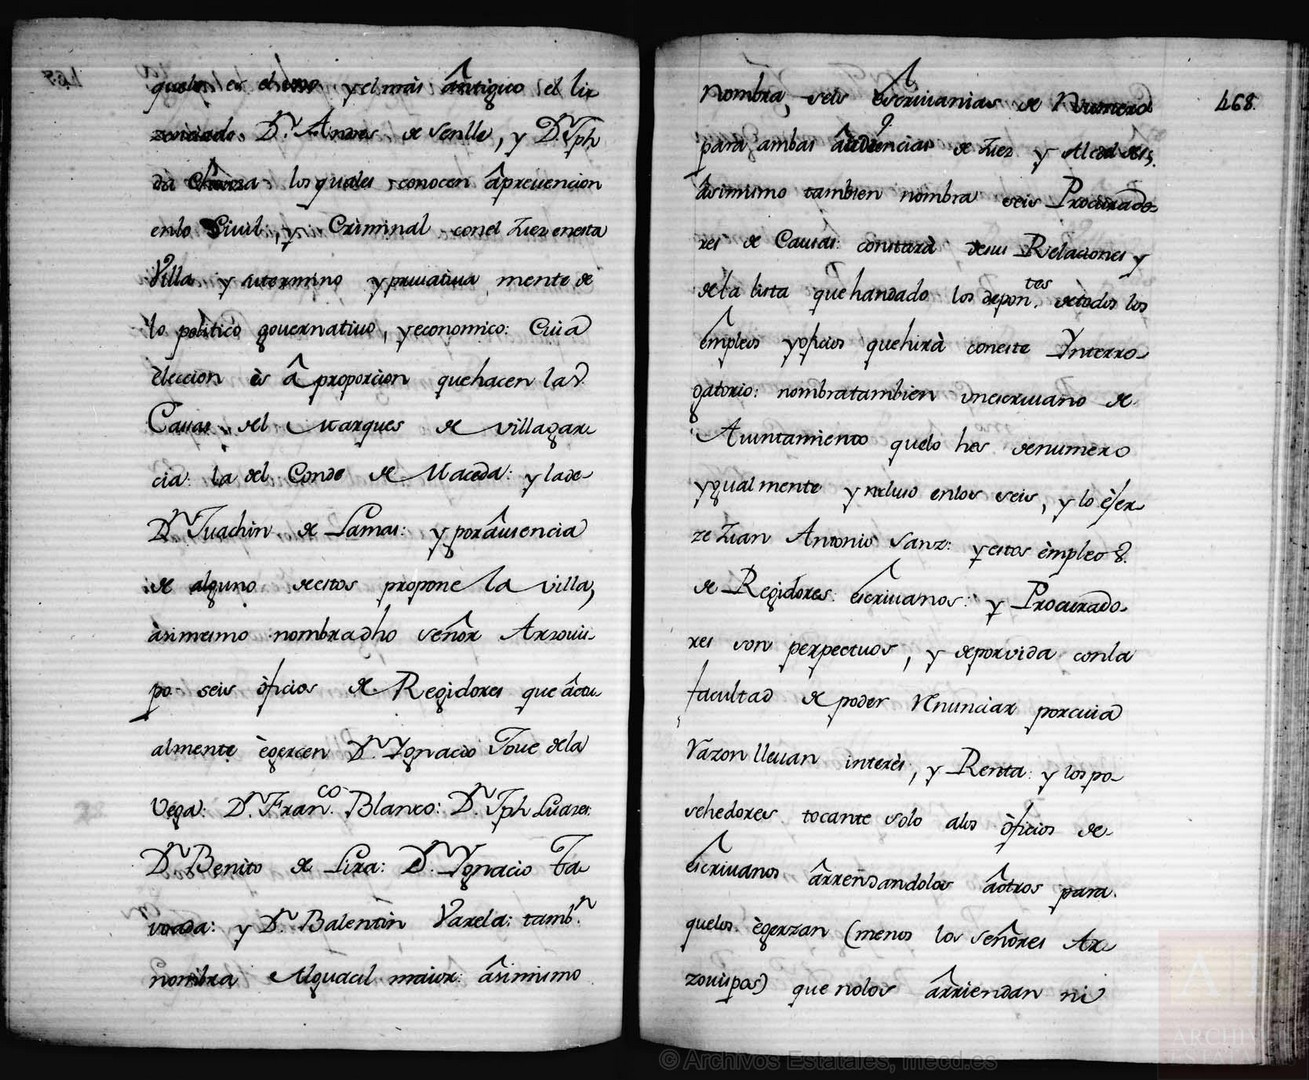 quelo es el uno y el más ântiguo el lix
zenciado Dn. Andres de Senlle, y Dn. Jph
da Chavza los quales conocen âprevencion
enlo Civil, y Criminal conel Juez enesta
Villa y sutermino yprivativa mente de
lo politico governativo, yeconomico: Cuia
êleccion ès â proporcion quehacen las
Casas del Marques de Villagar
cia: la del Conde de Maceda: y lade
Dn Juachin de Lamas: y por âusencia
de alguno destos propone la Villa,
àsimesmo nombra dho señor Arzovis
po seis òficios de Regidores que âctu
almente êgercen Dn. Ygnacio Tove dela
Vega: Dn. Franco. Blanco: Dn. Jph Luazes:
Dn Benito de Lira: Dn. Ygnacio Ta
voada: y Dn Balentin Varela: tambn.
nombra Alguacil maior: âsimismo
468
Nombra seis êscrivanias de Numero
para ambas âudiencias de Juez y Alcaldes.
âsimismo tambien nombra seis Procurado
res de Causas: constarà desus Relaciones y
dela lista quehandado los depontes. detodos los
êmpleos yoficios quehirà coneste Ynterro
gatorio: nombratambien unescrivano de
Ayuntamiento quelo hes denumero
ygualmente yncluso enlos seis, y lo êjer
ze Juan Antonio Sanz: yestos èmpleos
de Regidores: êscrivanos: y Procurado
res son perpectuos, y deporvida conla
facultad de poder renunciar porcuia
razon llevan interès, y Renta: y los po
sehedores tocante solo alos òficios de
êscrivanos ârrendandolos âotros para
quelos êgerzan (menos los señores Ar
zovispos) que nolos ârriendan ni
© Archivos Estatales, mecd.es